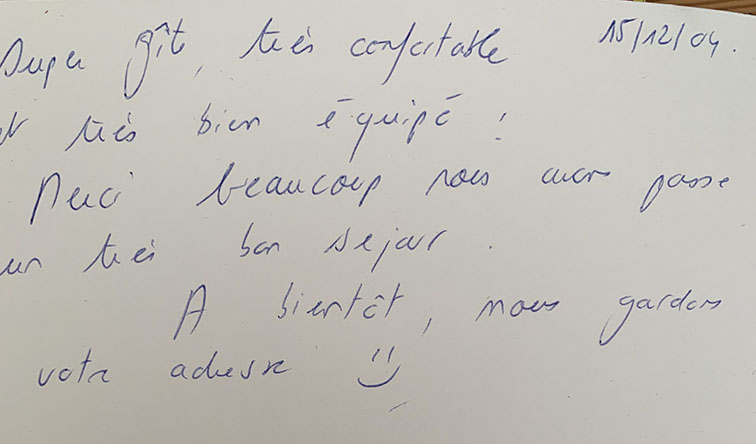 Super gîte, très confortable 15/12/04.
et très bien équipé !
Merci beaucoup nous avons passe
un très bon sejour.
A bientôt, nous gardons
votre adresse :)